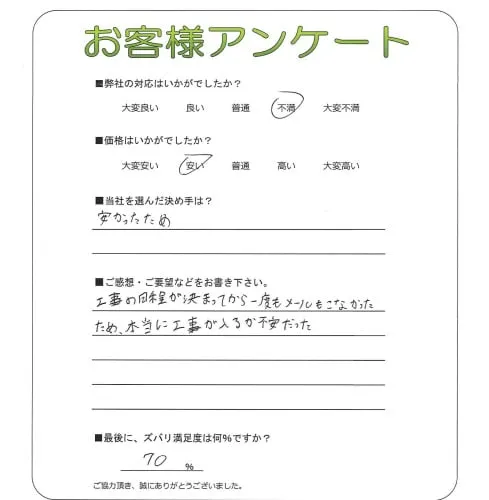 お客様アンケート
■弊社の対応はいかがでしたか？
大変良い 良い 普通 不満 大変不満
■価格はいかがでしたか？
大変安い 安い 普通 高い 大変高い
■当社を選んだ決め手は？
安かったため
■ご感想・ご要望などをお書き下さい。
工事の日程が決まってから一度もメールもこなかった
ため、本当に工事が入るか不安だった
■最後に、ズバリ満足度は何%ですか？
70 %
ご協力頂き、誠にありがとうございました。